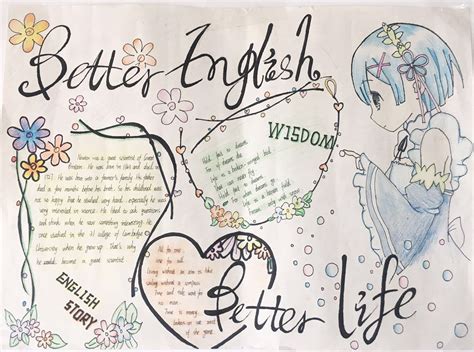 Better English
WISDOM
Newton was a great scientist of Great
Britain. He was born in and died
in He was born in a farmer's family. His father
died a few months before his birth. So his childhood was
not so happy that he studied very hard. especially he was
very interested in science. He liked to ask questions
and think when he saw something interesting. He
once studied in the college of Cambridge
University when he grew up. That's why he
could become a great scientist.
ENGLISH
STORY
Hold fast to dreams
For if dreams die
Life is a broken winged bird
That can never fly
Hold fast to dreams
For when dreams go
Life is a barren field
Frozen with snow
All for one,
one for all.
Living without an aim is like
sailing without a compass.
Time and tide wait for
no man.
Time is money.
of the game
Better life